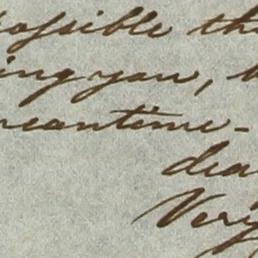 possible th
ing you, b
meantime-
dea
Very